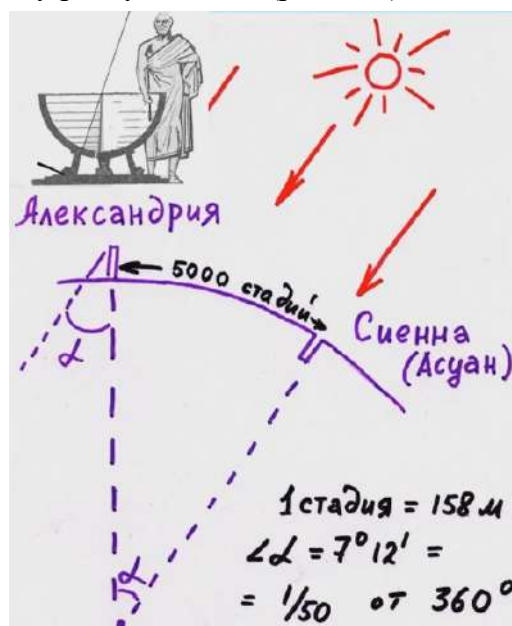 Александрия
α
5000 стадий
Сиенна
(Асуан)
α
1 стадия = 158 м
∠α = 7° 12' =
= 1/50 от 360°